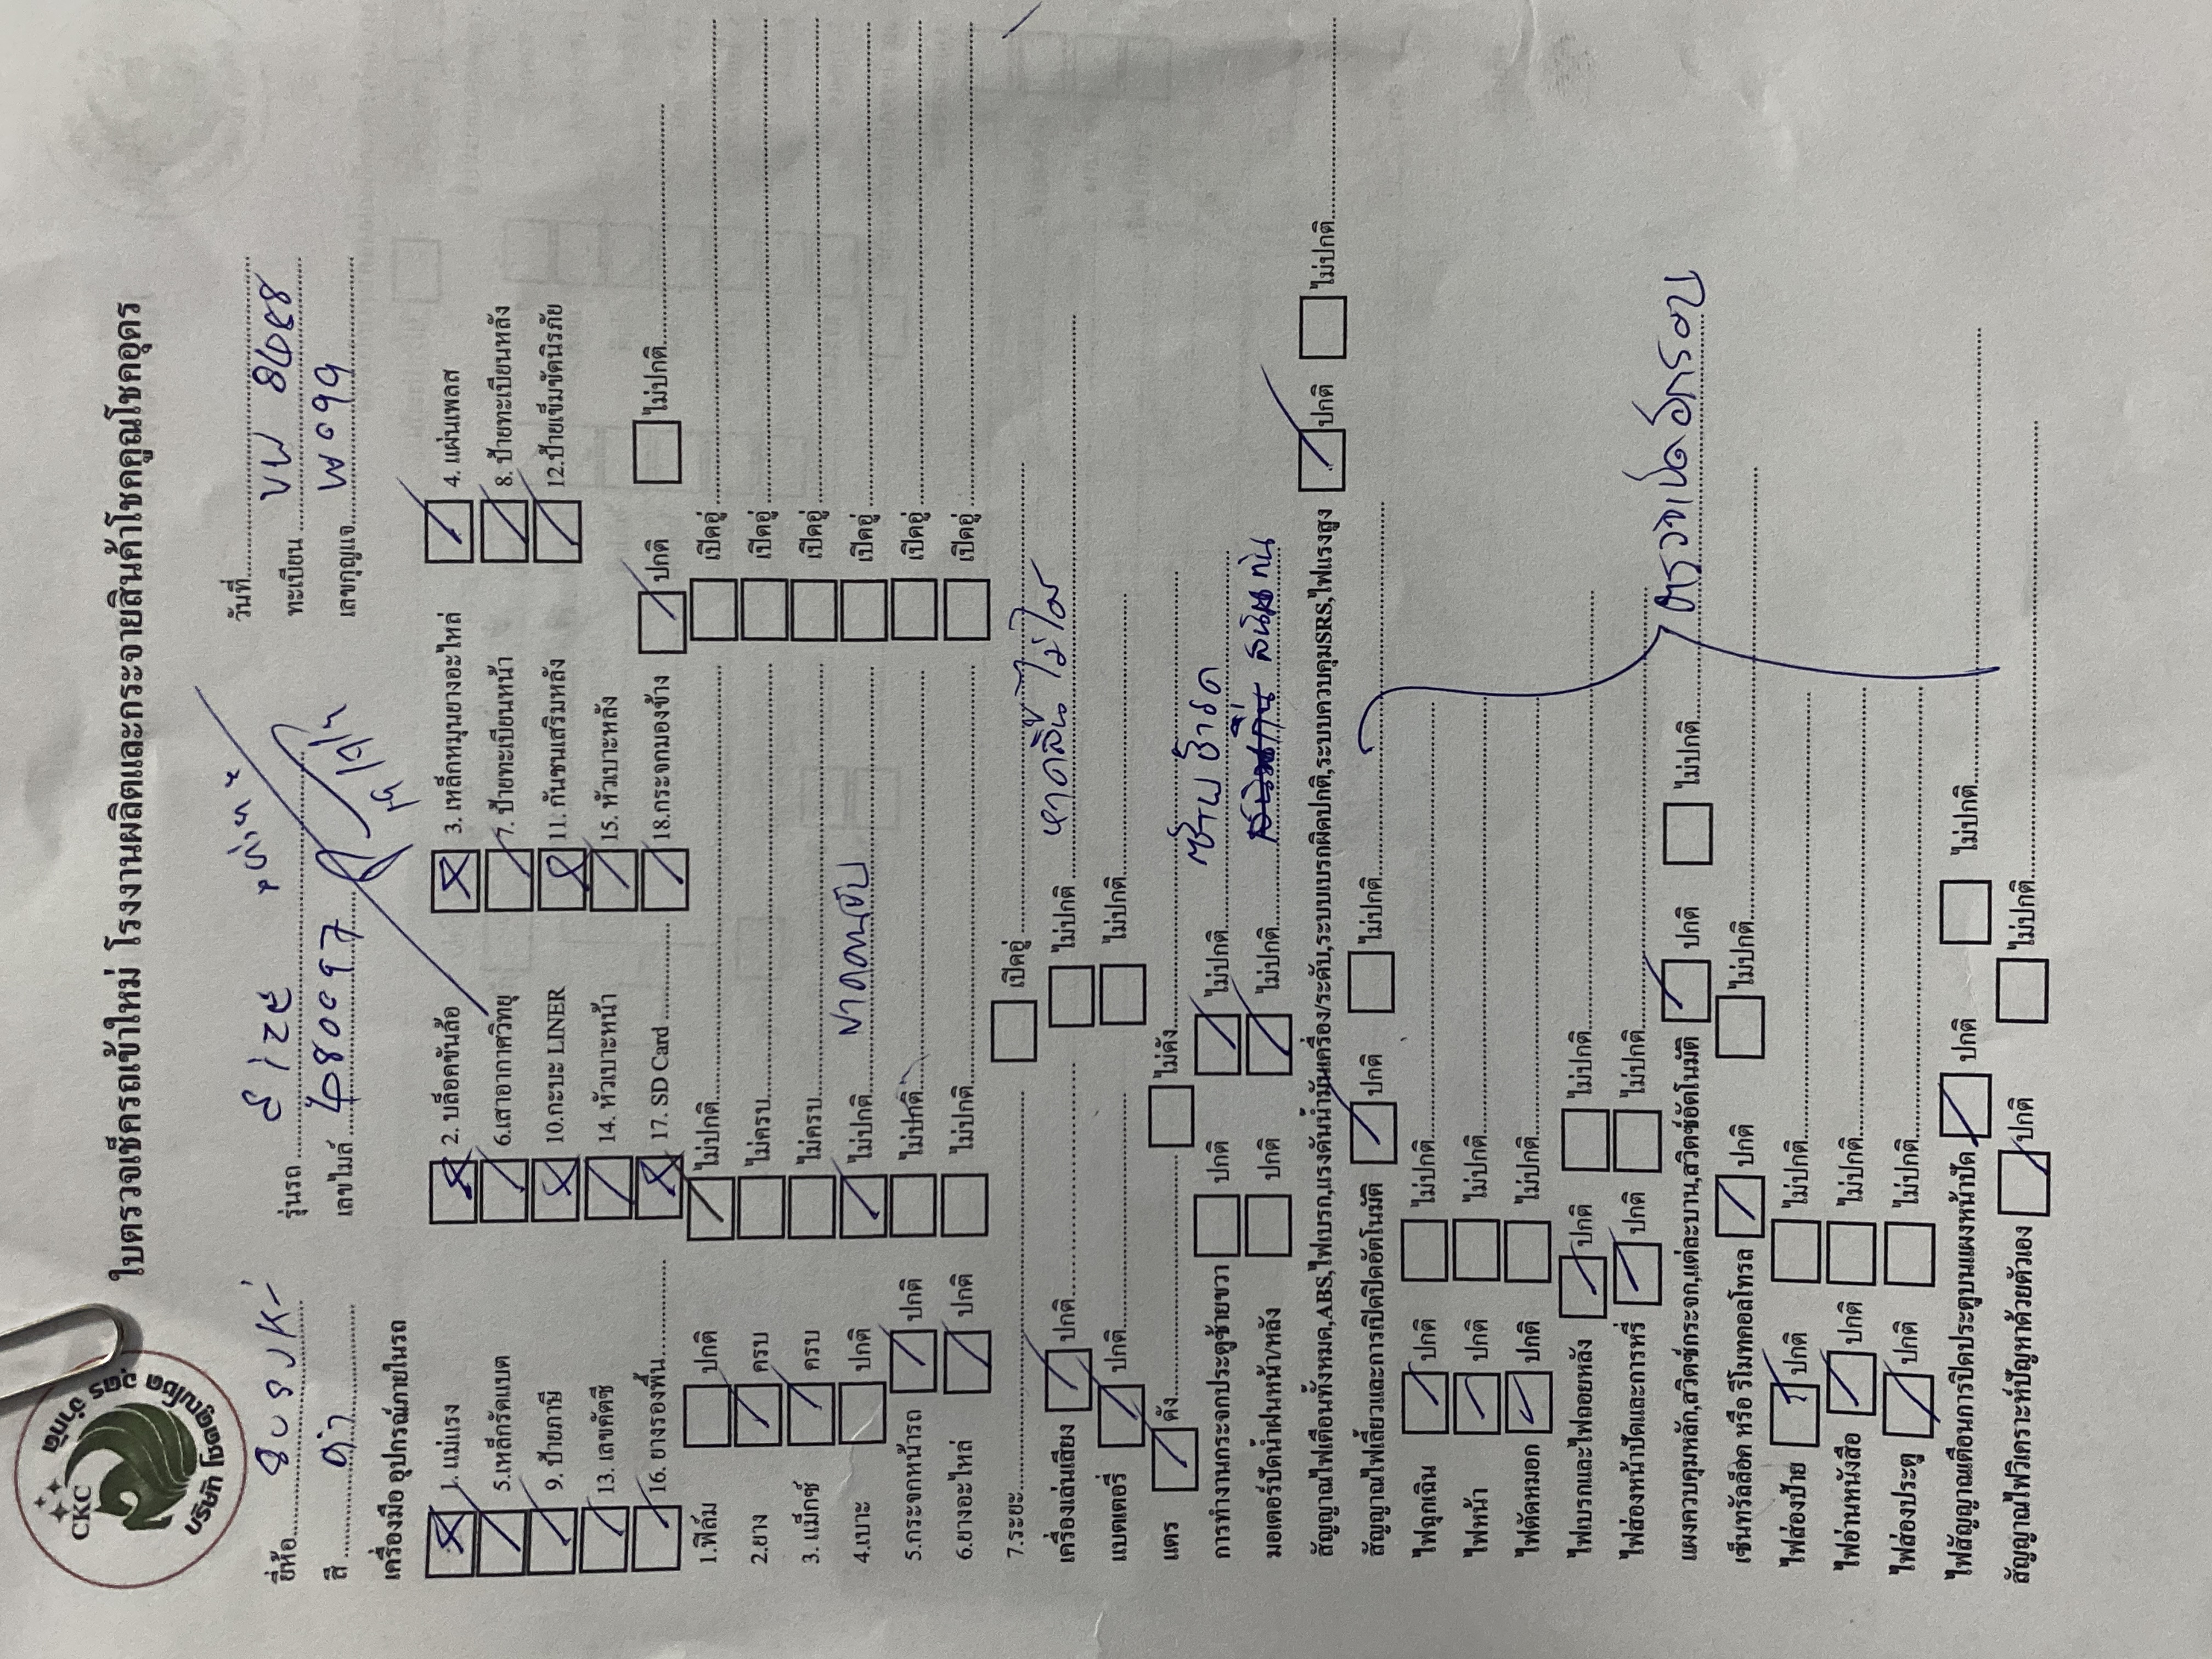 CKC
บริษัท โชคคูณโชค อุดร จำกัด
ใบตรวจเช็ครถเข้าใหม่ โรงงานผลิตและกระจายสินค้าโชคคูณโชคอุดร
วันที่
ยี่ห้อ รุ่นรถ ทะเบียน
สี ดำ เลขไมล์ เลขกุญแจ
เครื่องมือ อุปกรณ์ภายในรถ
1. แม่แรง 2. บล็อคขันล้อ 3. เหล็กหมุนยางอะไหล่ 4. แผ่นเพลส
5.เหล็กรัดแบต 6.เสาอากาศวิทยุ 7. ป้ายทะเบียนหน้า 8. ป้ายทะเบียนหลัง
9. ป้ายภาษี 10.กะบะ LINER 11. กันชนเสริมหลัง 12.ป้ายเข็มขัดนิรภัย
13. เลขคัตซี 14. หัวเบาะหน้า 15. หัวเบาะหลัง
16. ยางรองพื้น 17. SD Card 18.กระจกมองข้าง ปกติ ไม่ปกติ
1.ฟิล์ม ปกติ ไม่ปกติ เปิดอู่
2.ยาง ครบ ไม่ครบ เปิดอู่
3. แม็กซ์ ครบ ไม่ครบ เปิดอู่
4.เบาะ ปกติ ไม่ปกติ ขาดคนขับ เปิดอู่
5.กระจกหน้ารถ ปกติ ไม่ปกติ เปิดอู่
6.ยางอะไหล่ ปกติ ไม่ปกติ เปิดอู่
7.ระยะ เปิดอู่
เครื่องเล่นเสียง ปกติ ไม่ปกติ
แบตเตอรี่ ปกติ ไม่ปกติ
แตร ดัง ไม่ดัง
การทำงานกระจกประตูซ้ายขวา ปกติ ไม่ปกติ
มอเตอร์ปัดน้ำฝนหน้า/หลัง ปกติ ไม่ปกติ
สัญญาณไฟเตือนทั้งหมด,ABS,ไฟเบรก,แรงดันน้ำมันเครื่อง/ระดับ,ระบบเบรกผิดปกติ,ระบบควบคุมSRS,ไฟแรงสูง ปกติ ไม่ปกติ
สัญญาณไฟเลี้ยวและการเปิดปิดอัตโนมัติ ปกติ ไม่ปกติ
ไฟฉุกเฉิน ปกติ ไม่ปกติ
ไฟหน้า ปกติ ไม่ปกติ
ไฟตัดหมอก ปกติ ไม่ปกติ
ไฟเบรกและไฟถอยหลัง ปกติ ไม่ปกติ
ไฟส่องหน้าปัดและการหรี่ ปกติ ไม่ปกติ
แผงควบคุมหลัก,สวิตซ์กระจก,แต่ละบาน,สวิตซ์อัตโนมัติ ปกติ ไม่ปกติ
เซ็นทรัลล็อค หรือ รีโมทคอลโทรล ปกติ ไม่ปกติ
ไฟส่องป้าย ปกติ ไม่ปกติ
ไฟอ่านหนังสือ ปกติ ไม่ปกติ
ไฟส่องประตู ปกติ ไม่ปกติ
ไฟสัญญาณเตือนการปิดประตูบนแผงหน้าปัด ปกติ ไม่ปกติ
สัญญาณไฟวิเคราะห์ปัญหาด้วยตัวเอง ปกติ ไม่ปกติ